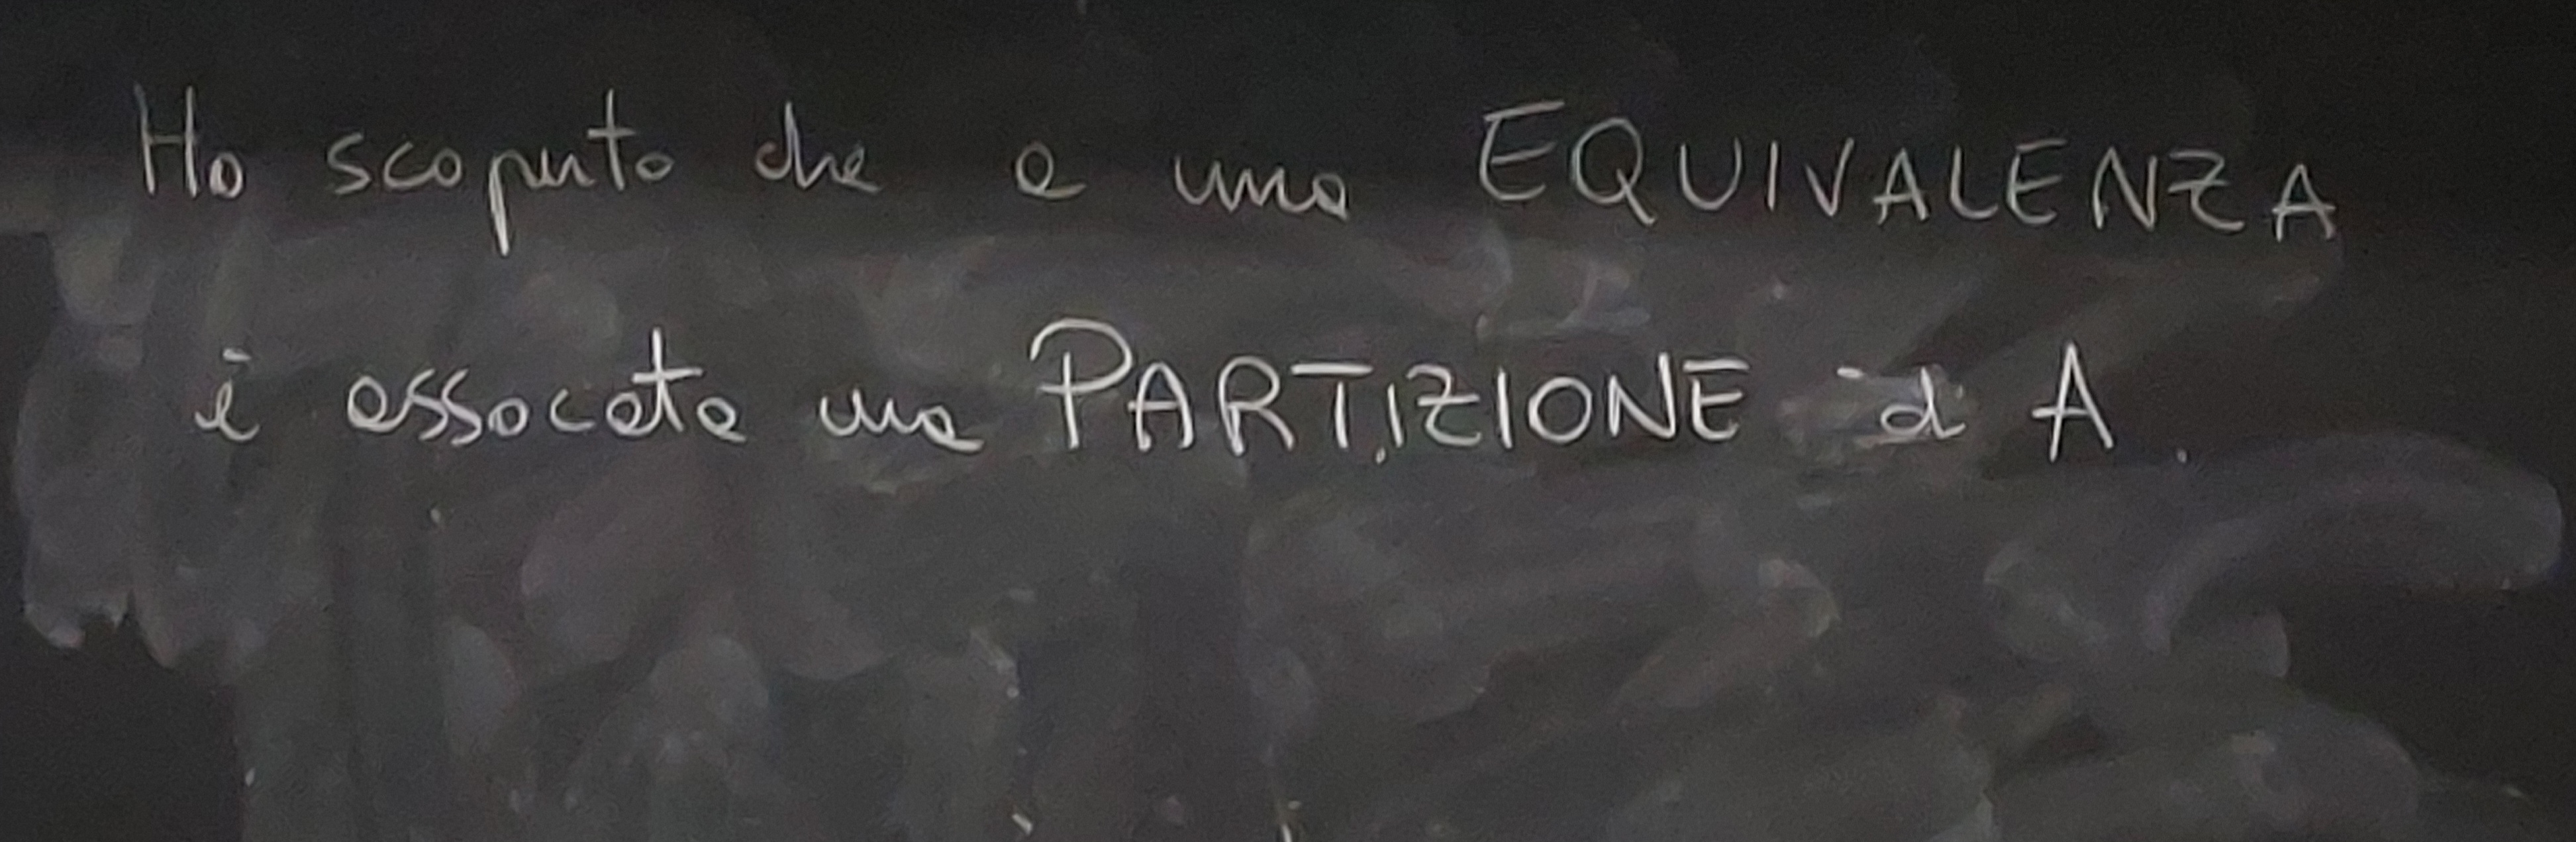 Ho scoperto che a una EQUIVALENZA
è associata una PARTIZIONE di A.